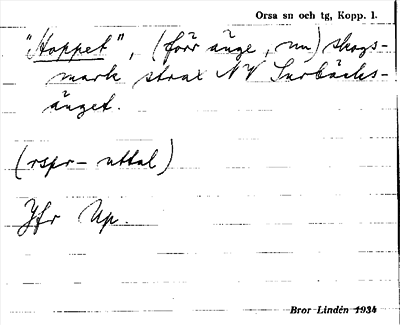 Orsa sn och tg, Kopp. l.
"Hoppet", (förr änge, nu) skogs-
mark strax NV Surbäcks-
änget.
(rspr-uttal)
Yfr Up.
Bror Lindén 1934